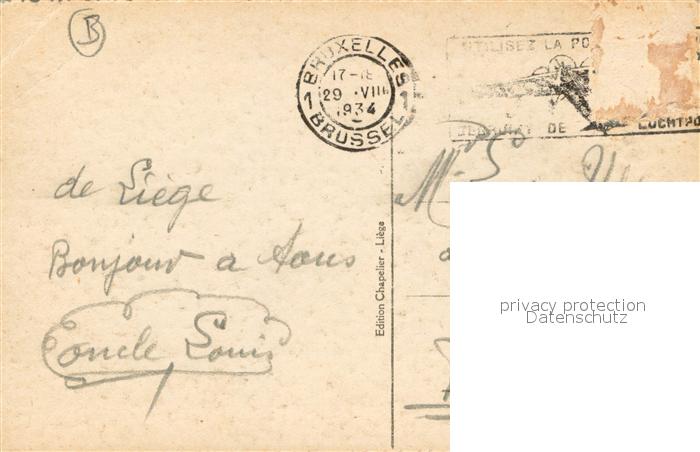 B
BRUXELLES
17-18
1 29 VIII 1
1934
BRUSSEL
UTILISEZ LA PO
DE LUCHTPO
de Liège
Bonjour a tous
Oncle Louis
Edition Chapelier - Liège
privacy protection
Datenschutz